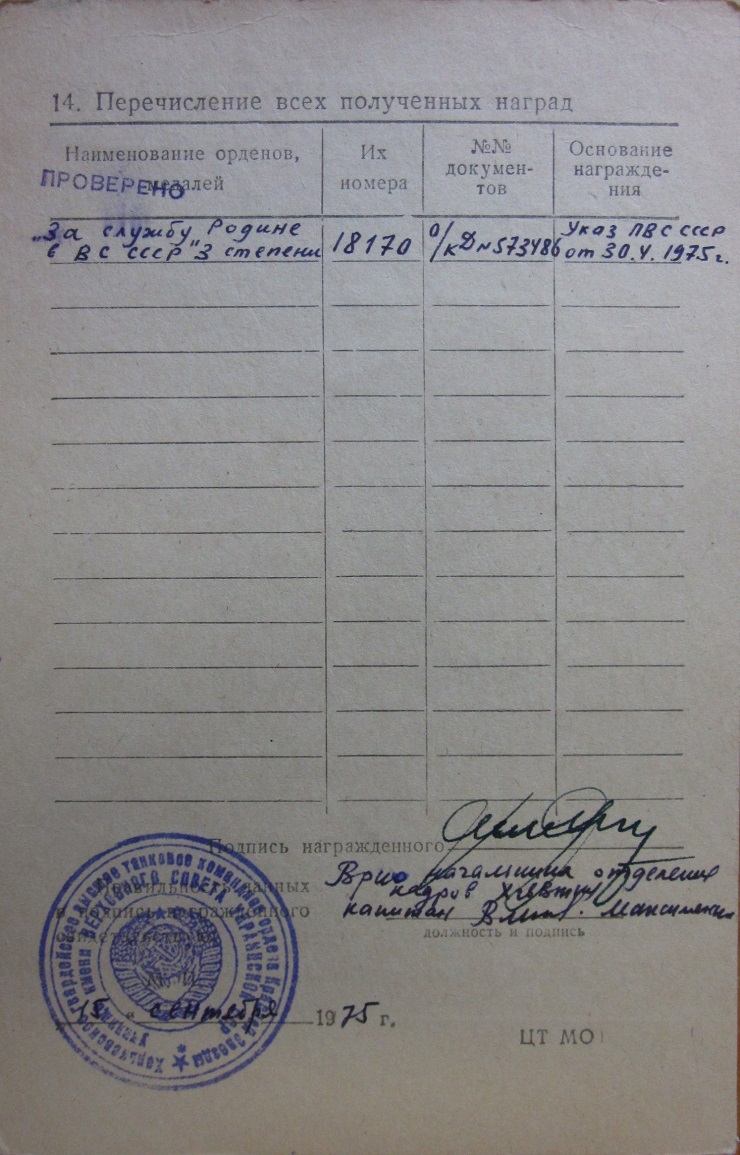 14. Перечисление всех полученных наград
Наименование орденов,
медалей
Их
номера
№№
докумен-
тов
Основание
награжде-
ния
ПРОВЕРЕНО
„За службу Родине
в ВС СССР" 3 степени
18170
о/к Д № 573486
Указ ПВС СССР
от 30.4.1975г.
Подпись награжденного
Врио начальника отделения
кадров ХГВТКУ
капитан Максименко
Правильность данных
и подпись награжденного
свидетельствую
должность и подпись
М. П.
15 " сентября 1975 г.
ЦТ МО
Харьковское гвардейское высшее танковое командное ордена Красной Звезды
училище имени ВЕРХОВНОГО СОВЕТА УКРАИНСКОЙ ССР